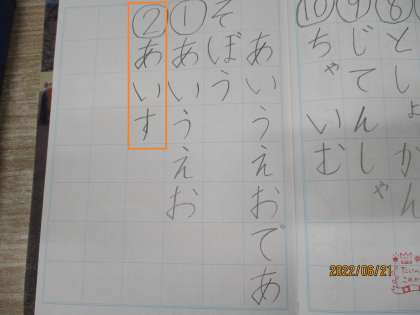 ⑧としょかん
⑨じてんしゃ
⑩ちゃいむ
あいうえおであ
そぼう
①あいうえお
②あいす
2022/06/21